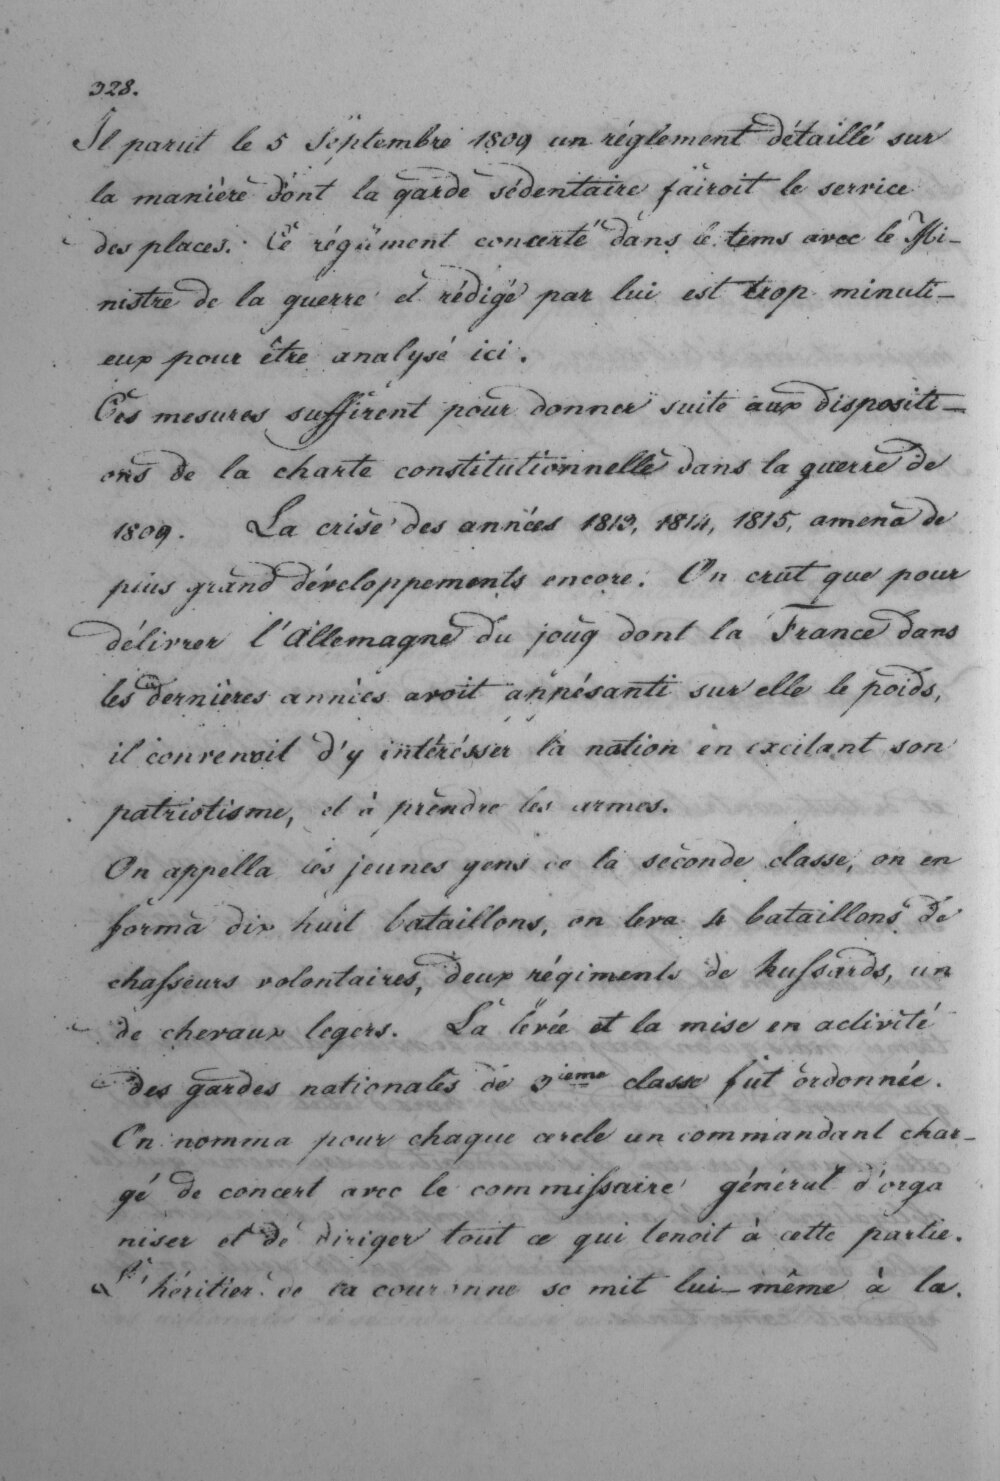 328.
Il parut le 5 Septembre 1809 un réglement détaillé sur
la manière dont la garde sédentaire fairoit le service
des places. Ce régiment concerté dans le tems avec le Mi-
nistre de la guerre et rédigé par lui est trop minuti-
eux pour être analysé ici.
Ces mesures suffirent pour donner suite aux dispositi-
ons de la charte constitutionnelle dans la guerre de
1809. La crise des années 1813, 1814, 1815, amena de
plus grand développements encore. On crut que pour
délivrer l'Allemagne du joug dont la France dans
les dernières années avoit appésanti sur elle le poids,
il convenoit d'y intérésser la nation en excitant son
patriotisme, et à prendre les armes.
On appella les jeunes gens de la seconde classe, on en
forma dix huit bataillons, on leva 4 bataillons de
chasseurs volontaires, deux régiments de hussards, un
de chevaux legers. La levée et la mise en activité
des gardes nationales de 3ieme classe fut ordonnée.
On nomma pour chaque cercle un commandant char-
gé de concert avec le commissaire général d'orga
niser et de diriger tout ce qui tenoit à cette partie.
L'héritier de la couronne se mit lui-même à la